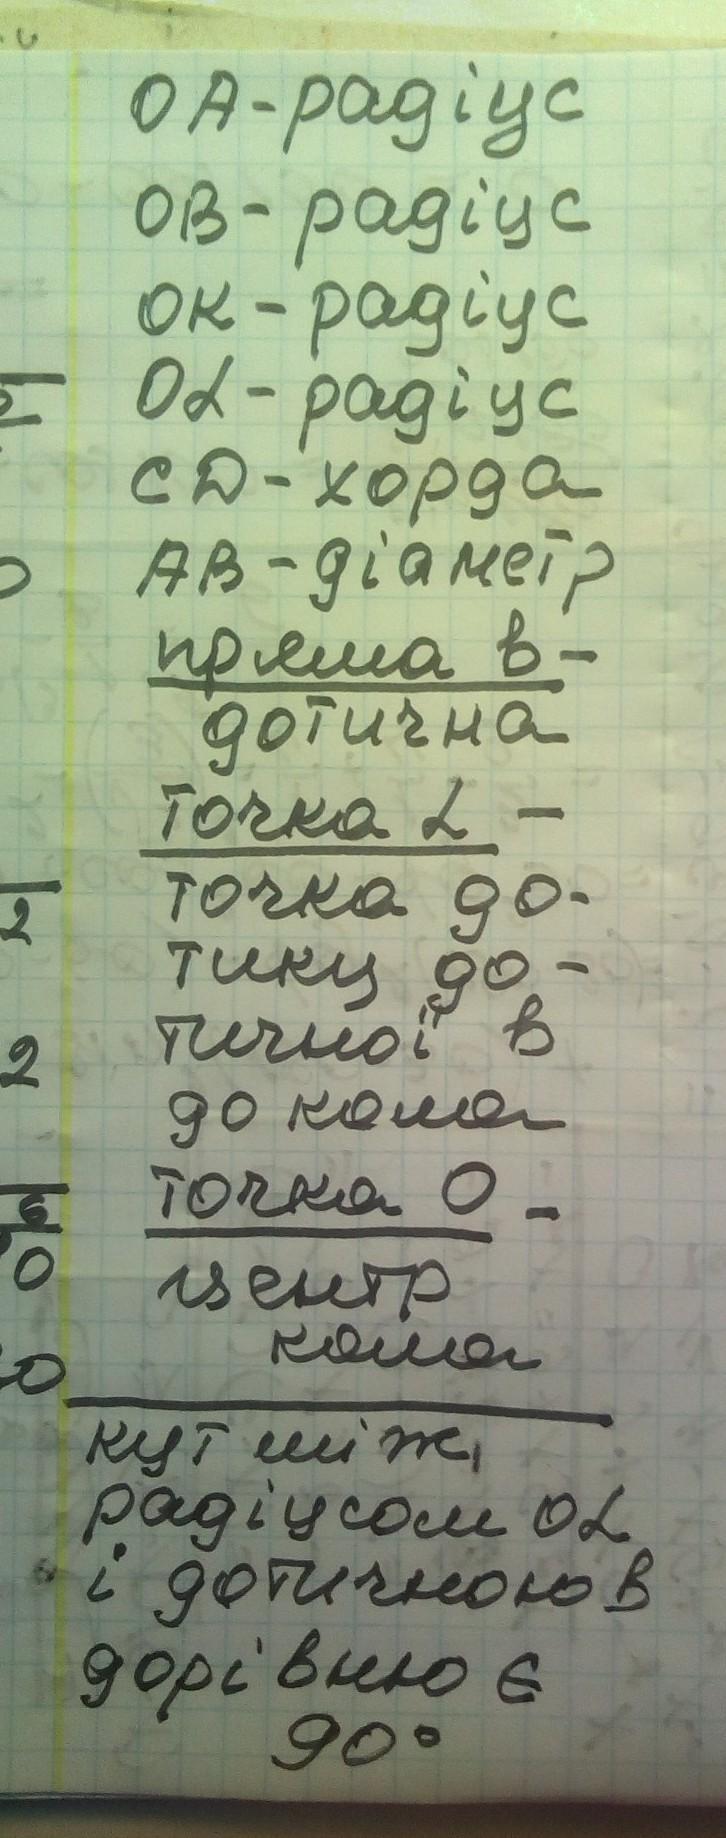 ОА-радіус
ОВ- радіус
ОК- радіус
OL- радіус
CD- хорда
АВ-діаметр
пряма в-
дотична
точка L -
точка до-
тику до-
тичної в
до кола
точка О -
центр
кола
кут між
радіусом OL
і дотичною в
дорівнює
90°